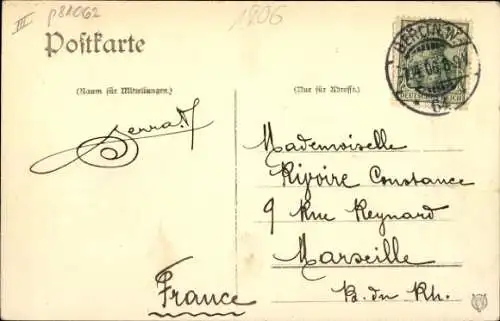 III p81062
1906
Postkarte
(Raum für Mitteilungen.)
(Nur für Adresse.)
BERLIN W.
64
DEUTSCHES REICH
Mademoiselle
Rivoire Constance
9 Rue Reynard
Marseille
B. du Rh.
France